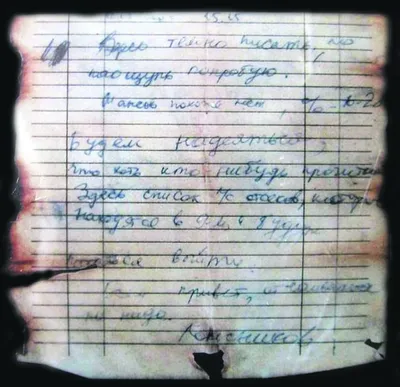 темно писать, но
наощупь попробую.
Шансов похоже нет, % 10-20
Будем надеяться,
что хоть кто-нибудь прочитает
Здесь список л/с отсеков, которые
находятся в 9-м и будут
выйти.
привет, отчаиваться
не надо.
Колесников